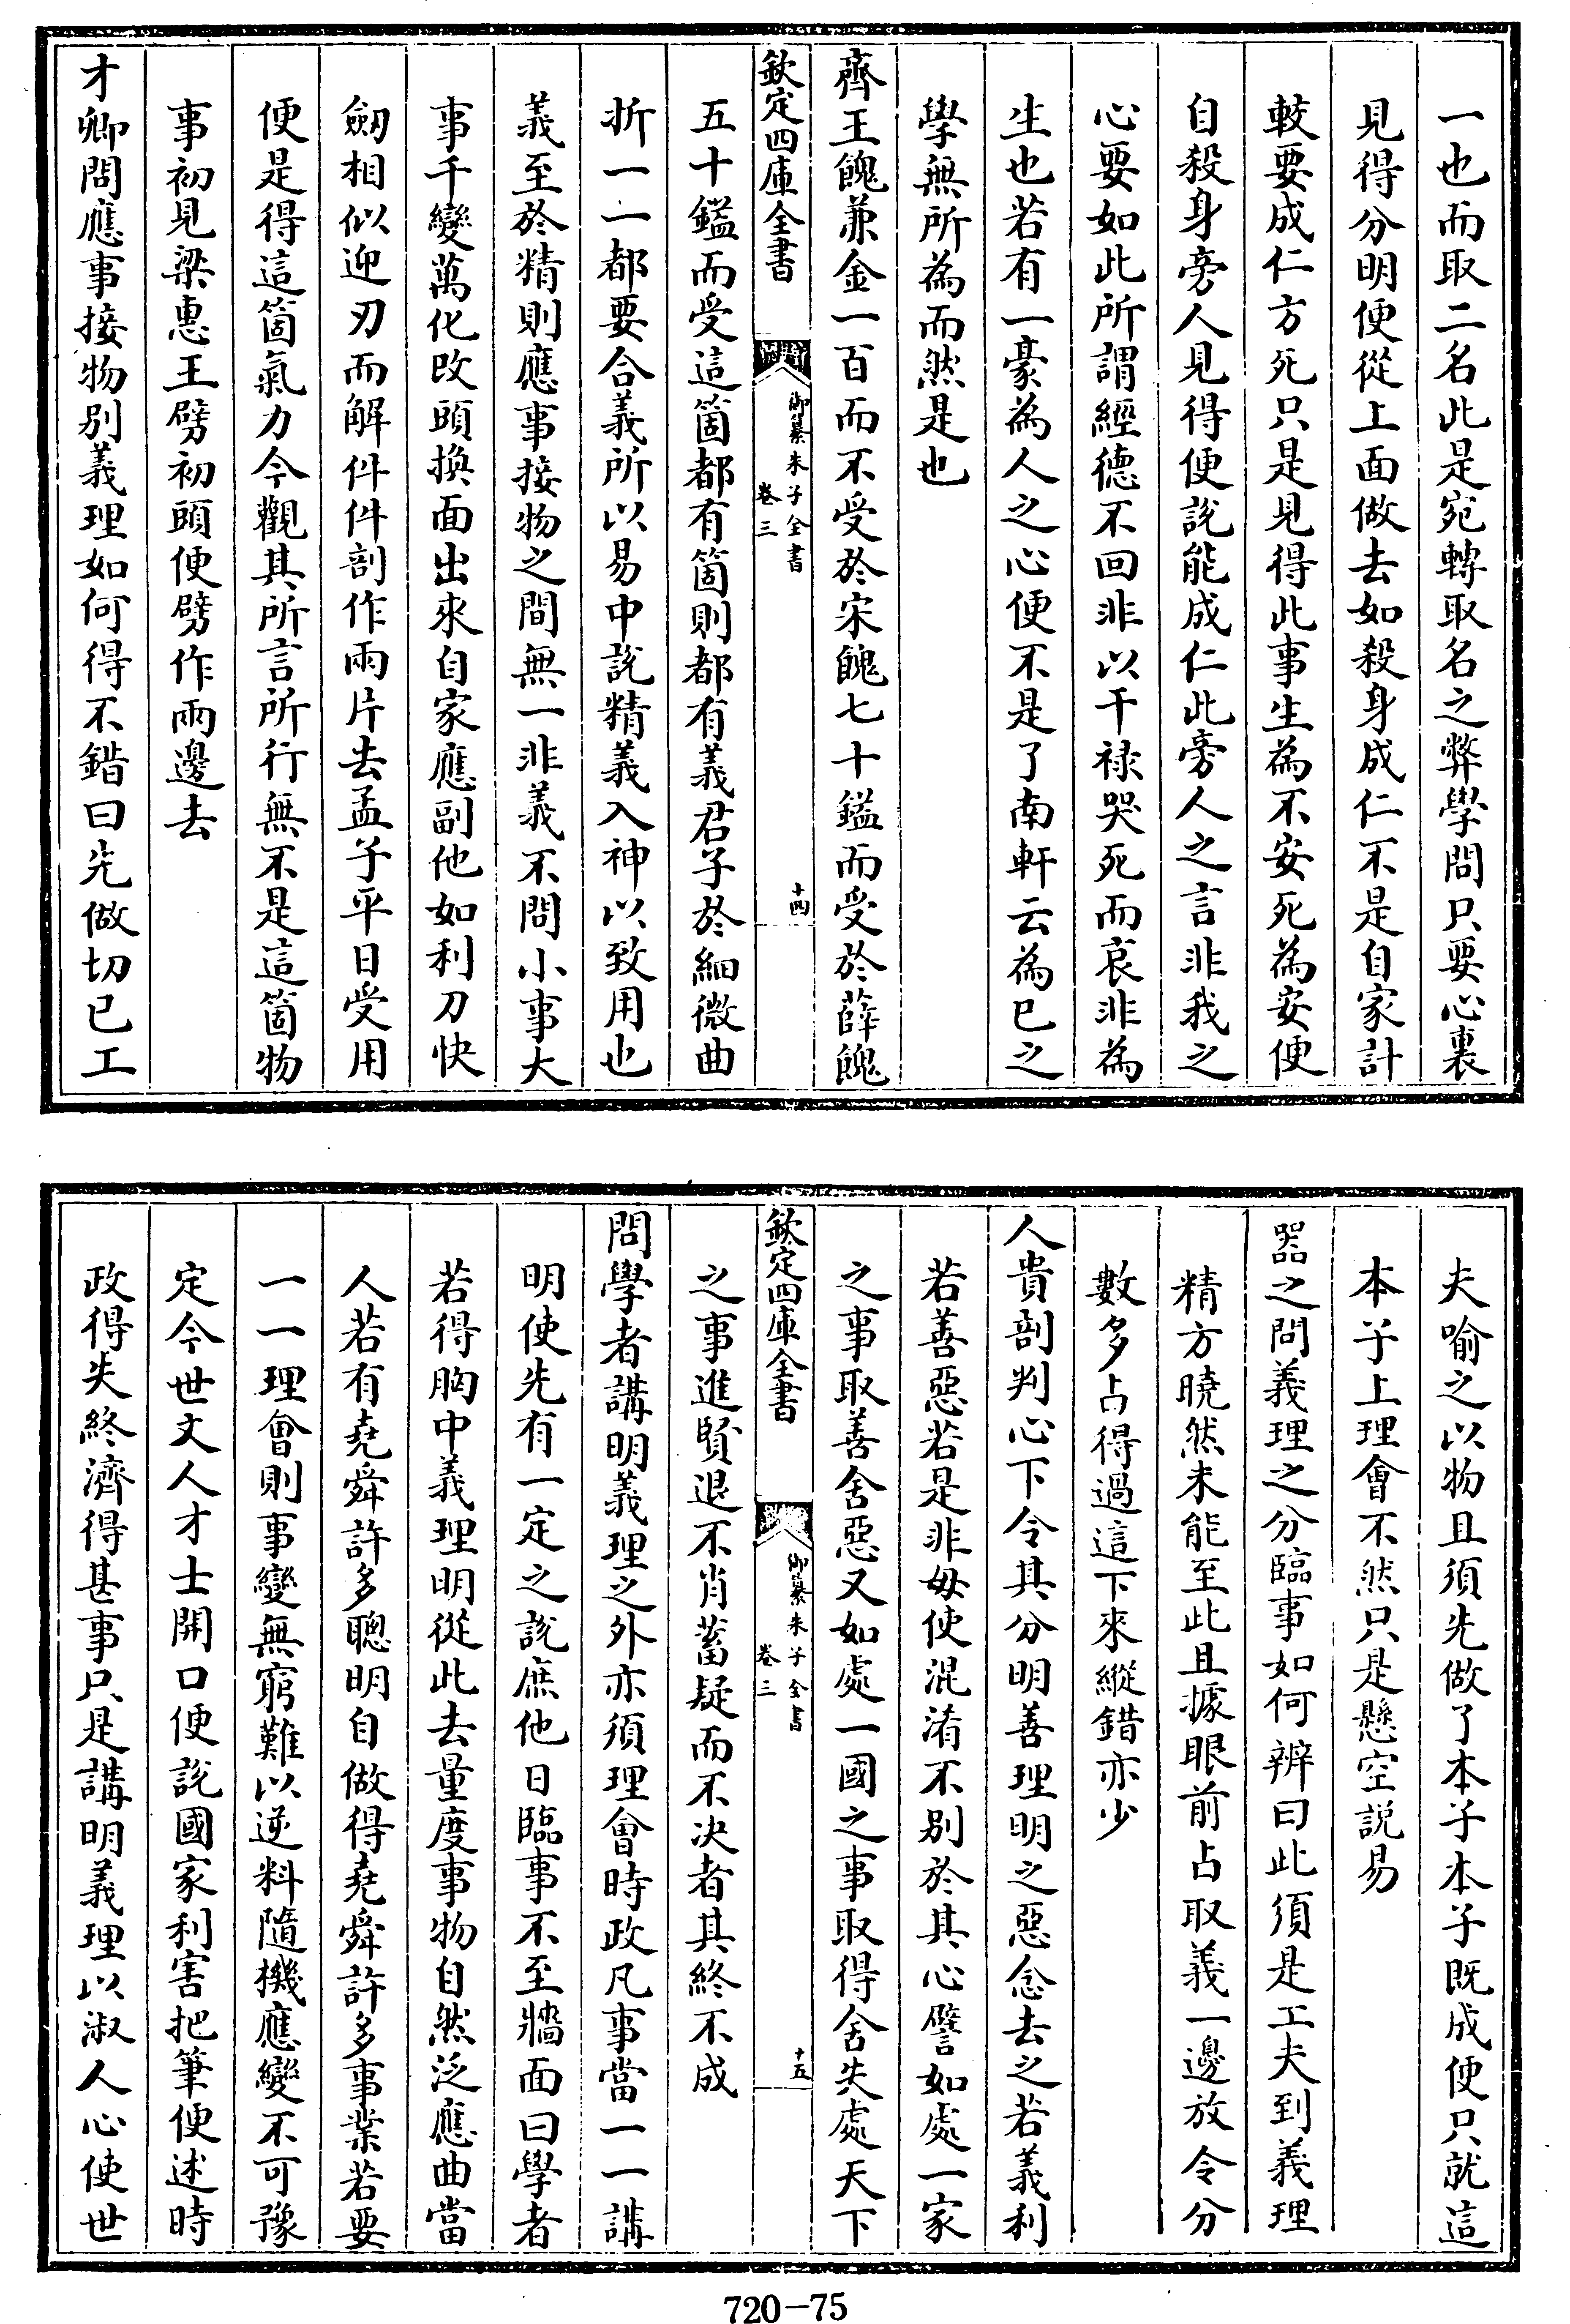 一也而取二名此是宛轉取名之弊學問只要心裏
見得分明便從上面做去如殺身成仁不是自家計
較要成仁方死只是見得此事生為不安死為安便
自殺身旁人見得便說能成仁此旁人之言非我之
心要如此所謂經德不回非以干祿哭死而哀非為
生也若有一豪為人之心便不是了南軒云為已之
學無所為而然是也
齊王餽兼金一百而不受於宋餽七十鎰而受於薛餽
欽定四庫全書
御纂朱子全書
卷三
十四
五十鎰而受這箇都有箇則都有義君子於細微曲
折一一都要合義所以易中說精義入神以致用也
義至於精則應事接物之間無一非義不問小事大
事千變萬化改頭換面出來自家應副他如利刀快
劒相似迎刃而解件件剖作兩片去孟子平日受用
便是得這箇氣力今觀其所言所行無不是這箇物
事初見梁惠王劈初頭便劈作兩邊去
才卿問應事接物別義理如何得不錯曰先做切已工
夫喻之以物且須先做了本子本子既成便只就這
本子上理會不然只是懸空説易
器之問義理之分臨事如何辨曰此須是工夫到義理
精方曉然未能至此且據眼前占取義一邊放令分
數多占得過這下來縱錯亦少
人貴剖判心下令其分明善理明之惡念去之若義利
若善惡若是非毋使混淆不別於其心譬如處一家
之事取善舍惡又如處一國之事取得舍失處天下
欽定四庫全書
御纂朱子全書
卷三
十五
之事進賢退不肖蓄疑而不决者其終不成
問學者講明義理之外亦須理會時政凡事當一一講
明使先有一定之説庶他日臨事不至牆面曰學者
若得胸中義理明從此去量度事物自然泛應曲當
人若有堯舜許多聰明自做得堯舜許多事業若要
一一理會則事變無窮難以逆料隨機應變不可豫
定今世文人才士開口便説國家利害把筆便述時
政得失終濟得甚事只是講明義理以淑人心使世
720-75